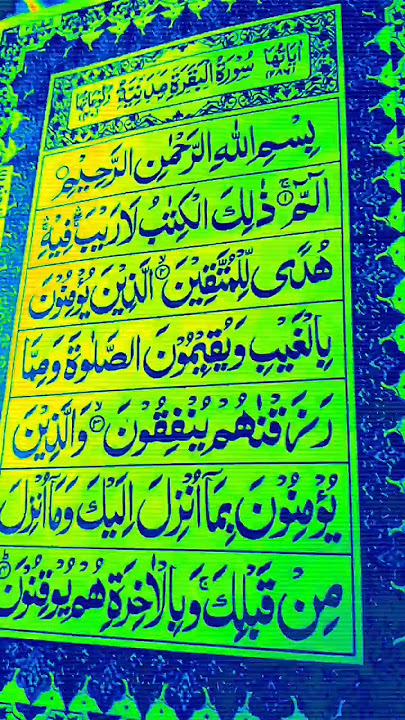 اٰيَاتُهَا ٢٨٦ سُوْرَةُ الْبَقَرَةِ مَدَنِيَّةٌ
بِسْمِ اللهِ الرَّحْمٰنِ الرَّحِيْمِ
الٓمّٓ ۚ﴿۱﴾ ذٰلِكَ الْكِتٰبُ لَا رَيْبَ ۛ فِيْهِ ۛ
هُدًى لِّلْمُتَّقِيْنَ ﴿۲﴾ الَّذِيْنَ يُؤْمِنُوْنَ
بِالْغَيْبِ وَيُقِيْمُوْنَ الصَّلٰوةَ وَمِمَّا
رَزَقْنٰهُمْ يُنْفِقُوْنَ ﴿۳﴾ وَالَّذِيْنَ
يُؤْمِنُوْنَ بِمَآ اُنْزِلَ اِلَيْكَ وَمَآ اُنْزِلَ
مِنْ قَبْلِكَ ۚ وَبِالْاٰخِرَةِ هُمْ يُوْقِنُوْنَ